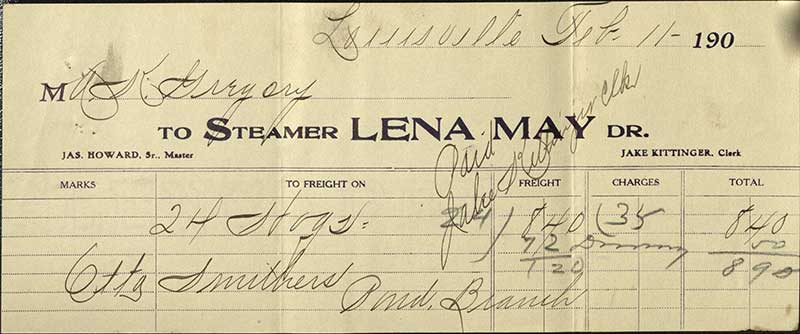 Louisville Feb. 11- 190
M A. K. Gregory
TO STEAMER LENA MAY DR.
JAS. HOWARD, Sr., Master
JAKE KITTINGER, Clerk
Paid
Jake Kittinger Clk
MARKS TO FREIGHT ON FREIGHT CHARGES TOTAL
24 Hogs 24) 840 (35 840
72 50
120 890
Smithers
Pond. Branch